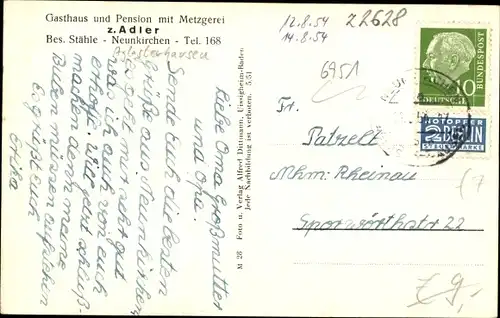 Gasthaus und Pension mit Metzgerei
z. Adler
Bes. Stähle - Neunkirchen - Tel. 168
12.8.54
14.8.54
22628
6951
10
DEUTSCHE
BUNDESPOST
NOTOPFER
2 BERLIN
STEUERMARKE
Liebe Oma Großmutter
und Opa.
Sende Euch die besten
Grüße aus Neunkirchen
mir geht gut
was ich auch von euch
erhoffe. Will jetzt schließ-
machen denn meine
müssen aufstehen
Es grüßt euch
Erika
M 26 Foto u. Verlag Alfred Dittmann, Uissigheim-Baden
Jede Nachbildung ist verboten. 5.51
Fr.
Patzelt
Mhm. Rheinau
Sporwörthstr 22